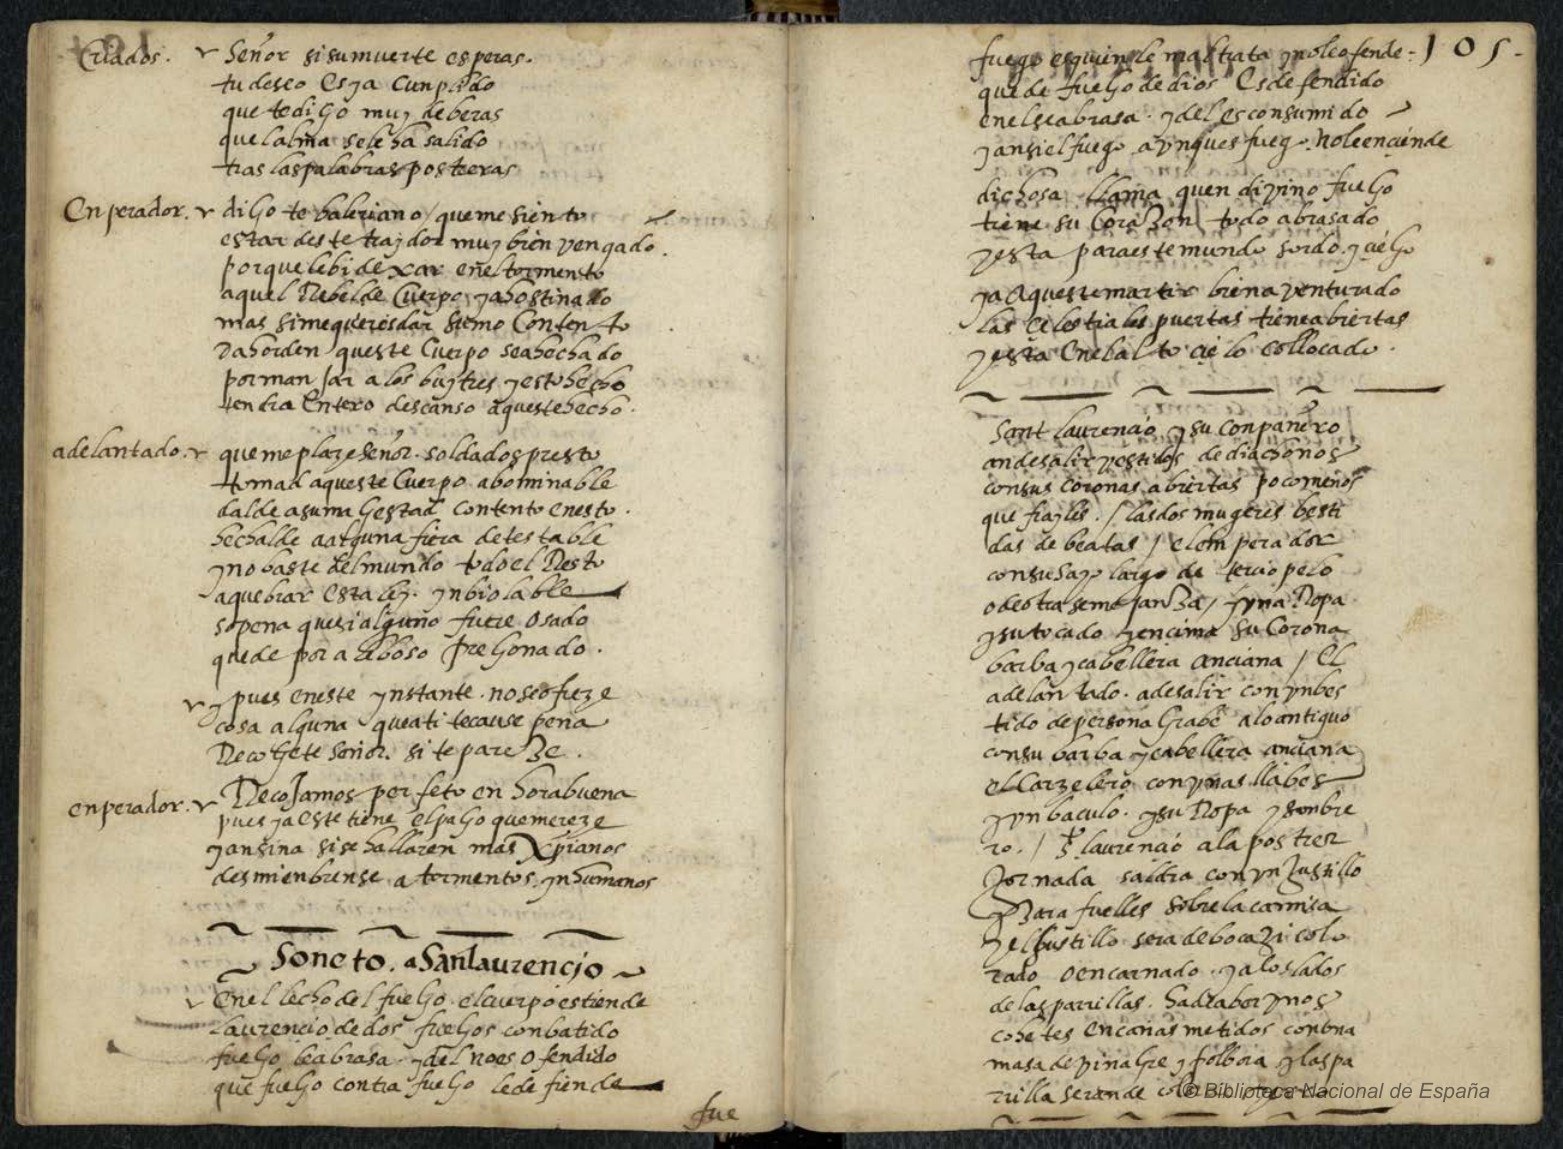 Criados. Señor si su muerte esperas.
tu deseo es ya cunplido
que te digo muy de beras
que l alma se le ha salido
tras las palabras postreras
Enperador. digo te baleriano / que me siento
estar deste traydor muy bien vengado.
porque le bi dexar en el tormento
aquel Rebelde Cuerpo y abostinado
mas si me queres dar sumo Contento
da horden queste Cuerpo sea hechado
por manjar a los buytres y esto hecho
tendra Entero descanso aqueste hecho.
adelantado. que me plaze señor. soldados presto
tomad aqueste Cuerpo abominable
dalde a su magestad contento en esto.
hechalde a alguna fiera detestable
y no baste del mundo todo el Resto
a quebrar esta ley. ynbiolable
so pena que si alguno fuere osado
quede por aleboso pregonado.
y pues en este ynstante. no se ofreze
cosa alguna que a ti te cause pena
Recogete señor. si te pareze.
enperador. Recojamos perfeto en hora buena
pues ya este tiene el pago que mereze
y ansina si se hallaren mas Xpianos
desmienbrense a tormentos. ynhumanos
Soneto. a San laurencio
En el lecho del fuego el cuerpo estiende
laurencio de dos fuegos conbatido
fuego le abrasa. y del no es ofendido
que fuego contra fuego le defiende
fue
105
fuego es quien le maltrata y no le ofende.
que de fuego de dios Es defendido
en el se abrasa. y del es consumido
y ansi el fuego aunques fuego. No le enciende
dichosa llama quen divino fuego
tiene su Corazon todo abrasado
y esta para este mundo sordo. y ciego
ya aqueste martir bienaventurado
las celestiales puertas tiene abiertas
y esta En el alto cielo collocado.
Sant laurencio y su conpañero
an de salir vestidos de diachonos
con sus coronas abiertas poco menos
que frayles. / las dos mugeres besti
das de beatas / el enperador
con su sayo largo de terciopelo
o de otra semejanza / y una Ropa
y su tocado y encima su Corona
barba y cabellera anciana / El
adelantado. a de salir con un bes
tido de persona Grabe a lo antiguo
con su barba y cabellera anciana
el Carzelero con unas llabes
y un baculo. y su Ropa y sonbre
ro. / St laurencio a la postrer
Jornada saldra con un Justillo
para fuelles sobre la camisa
y el justillo sera de bocazi colo
rado o encarnado. y a los lados
de las parrillas. habra bor ynos
cohetes en cañas metidos con una
masa de vinagre y polbora y las pa
rrillas seran de
© Biblioteca Nacional de España